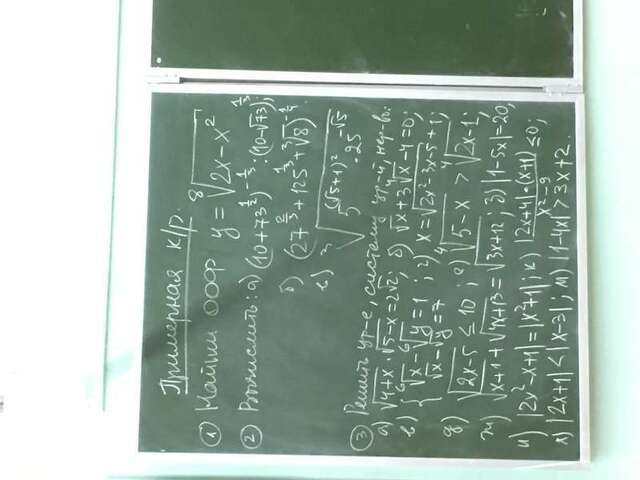 Примерная к/р.
① Найти ООФ y = ⁸√(2x-x²)
② Вычислить: а) (10+73^(1/2))^(-1/3) : (10-√73)^(1/3);
б) (27^(2/3) + 125^(1/3) + ³√8)^(-1/4)
в) ³√(5^((√5+1)²) · 25^(-√5))
③ Решить ур-е, систему ур-й, нер-во:
а) √(4+x) · √(5-x) = 2√2; б) √x + 3⁴√x - 4 = 0;
в) { ⁶√x - ⁶√y = 1 ; г) x = √(2x²-3x-5) + 1;
√x - √y = 7
д) √(2x-5) ≤ 10; е) ⁴√(5-x) > ⁴√(2x-1);
ж) √(x+1) + √(4x+13) = √(3x+12); з) |1-5x| = 20,
и) |2x²-x+1| = |x²+1|; к) |2x+4|·(x+1)/(x²-9) ≤ 0;
л) |2x+1| < |x-3|; м) |1-4x| > 3x+2.